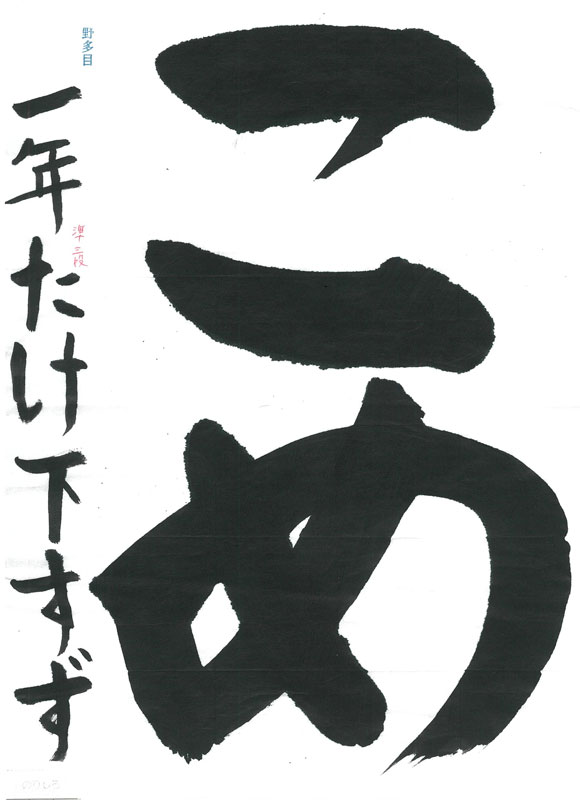 こめ
野多目
準三段
一年たけ下すず